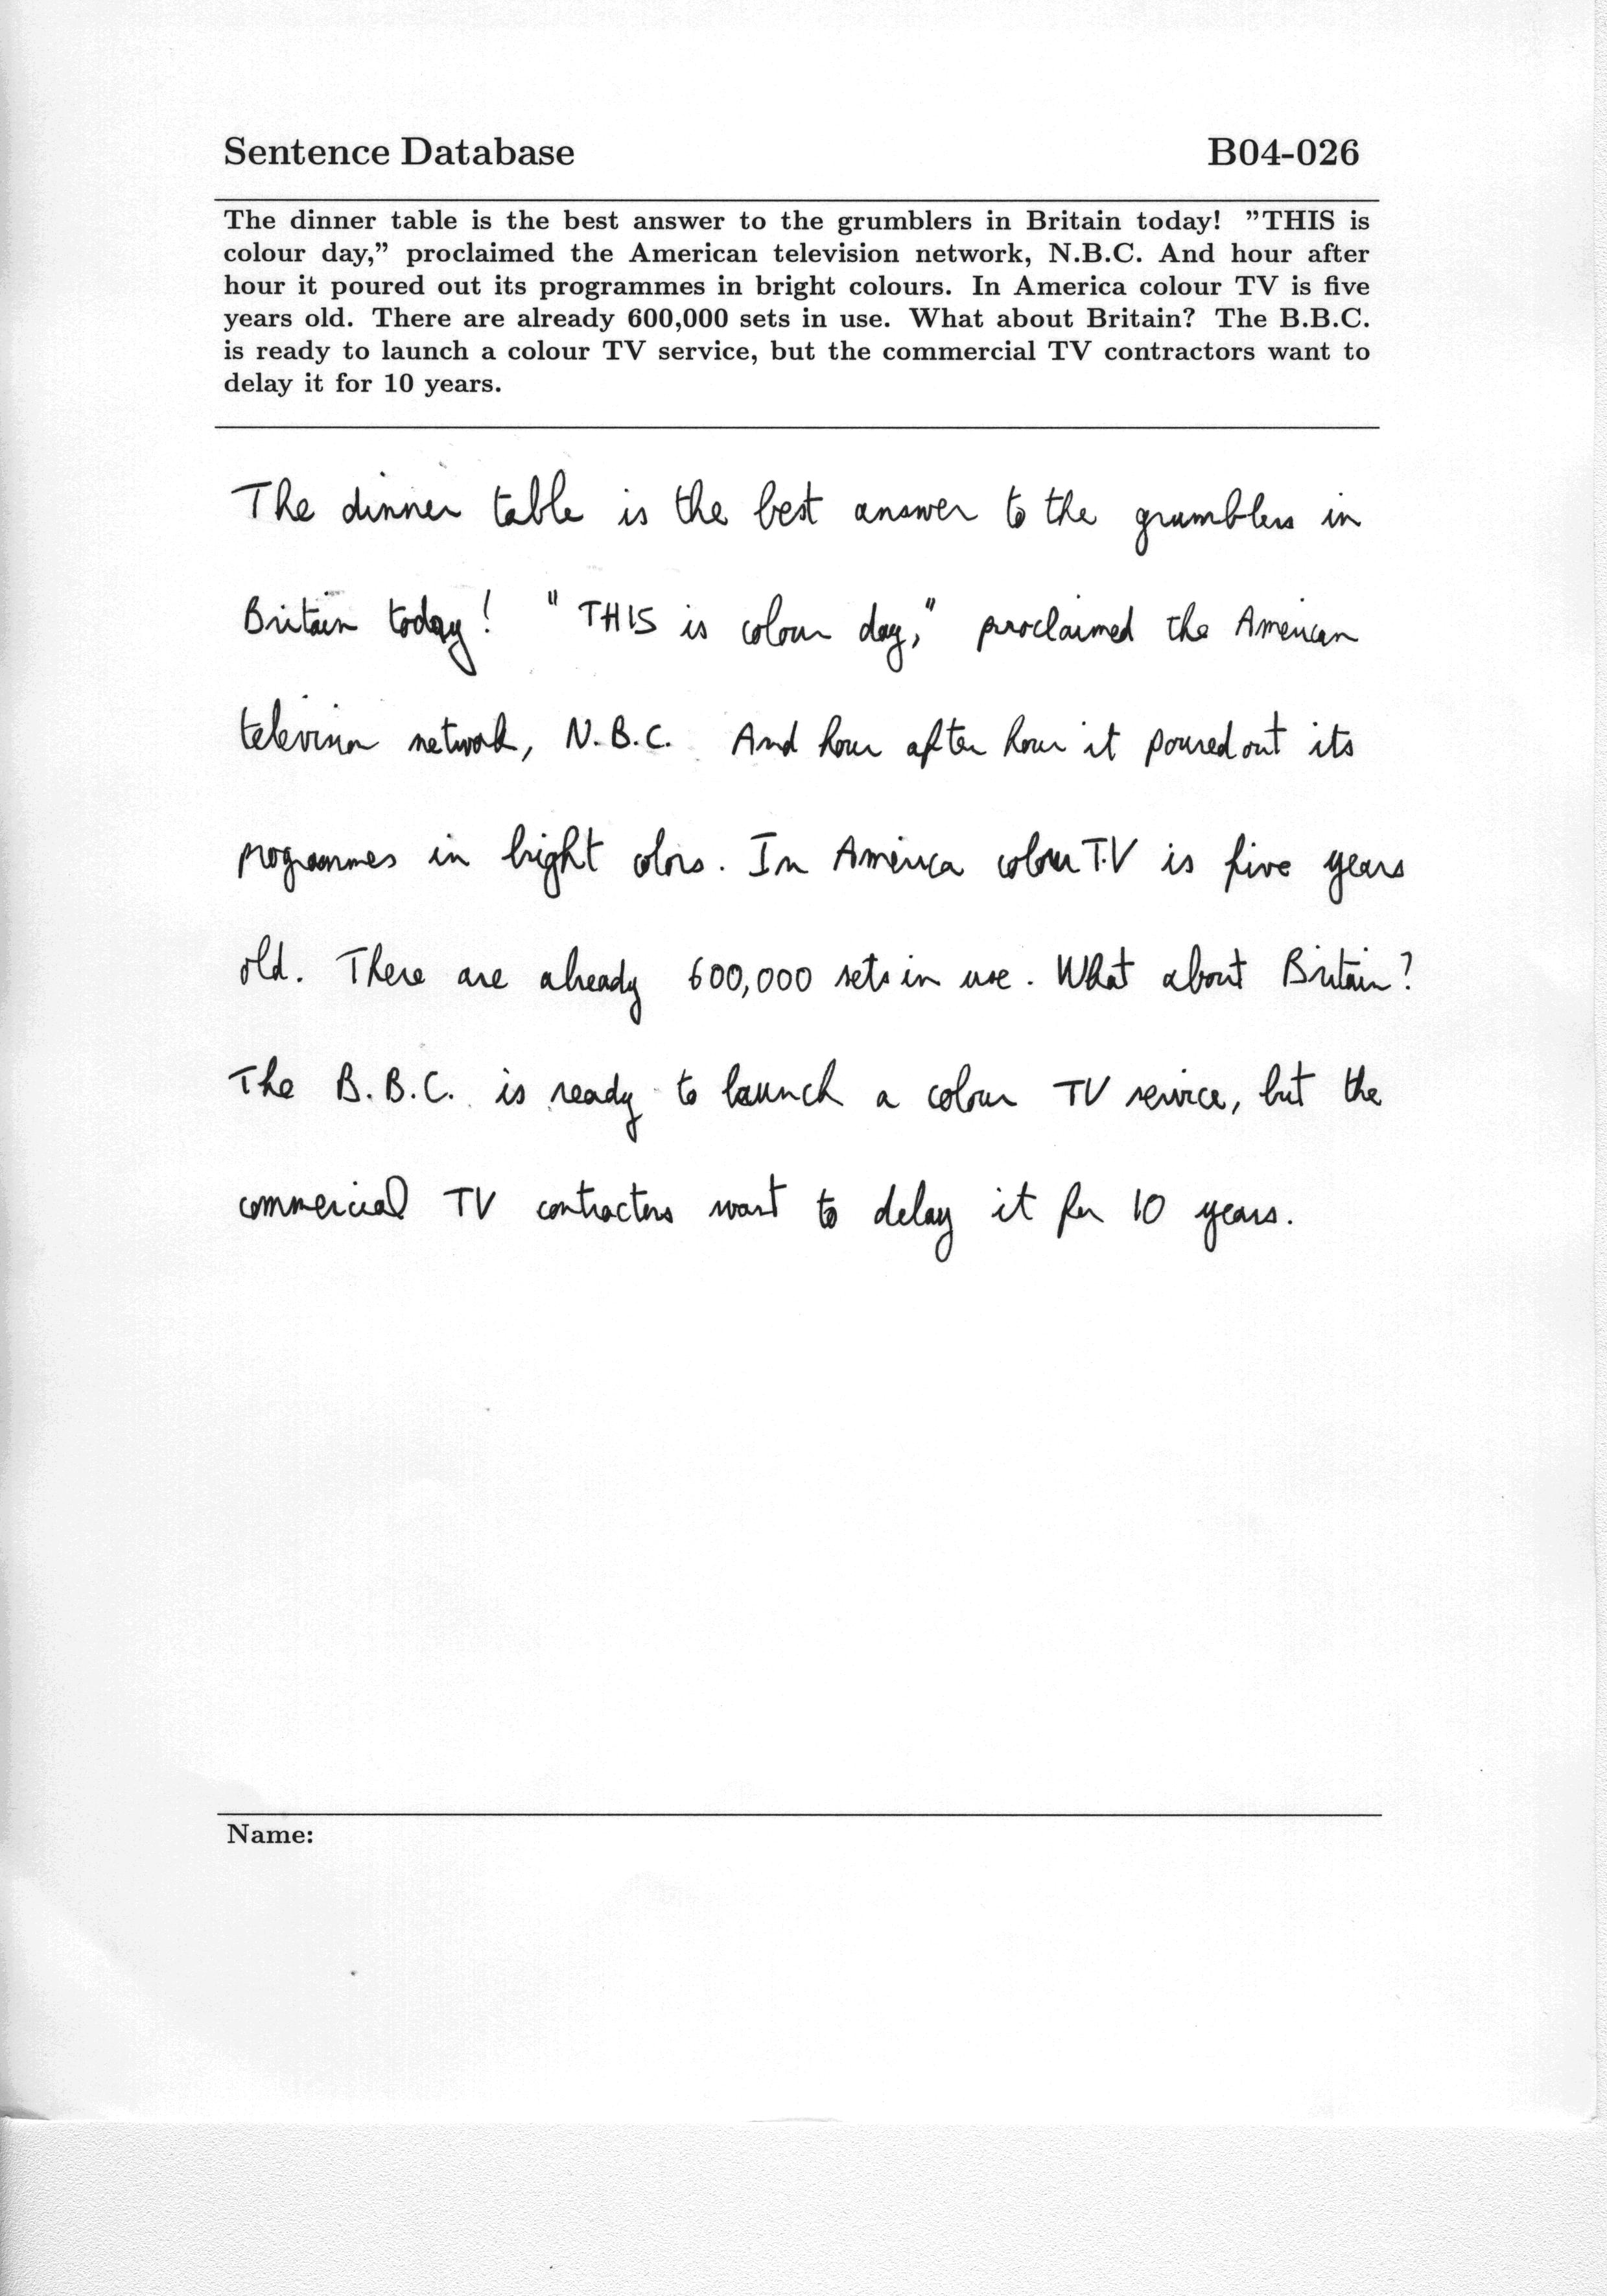 Sentence Database B04-026
The dinner table is the best answer to the grumblers in Britain today! ”THIS is
colour day,” proclaimed the American television network, N.B.C. And hour after
hour it poured out its programmes in bright colours. In America colour TV is five
years old. There are already 600,000 sets in use. What about Britain? The B.B.C.
is ready to launch a colour TV service, but the commercial TV contractors want to
delay it for 10 years.
The dinner table is the best answer to the grumblers in
Britain today! "THIS is colour day," proclaimed the American
television network, N.B.C. And hour after hour it poured out its
programmes in bright colors. In America colour T.V is five years
old. There are already 600,000 sets in use. What about Britain?
The B.B.C. is ready to launch a colour TV service, but the
commercial TV contractors want to delay it for 10 years.
Name: